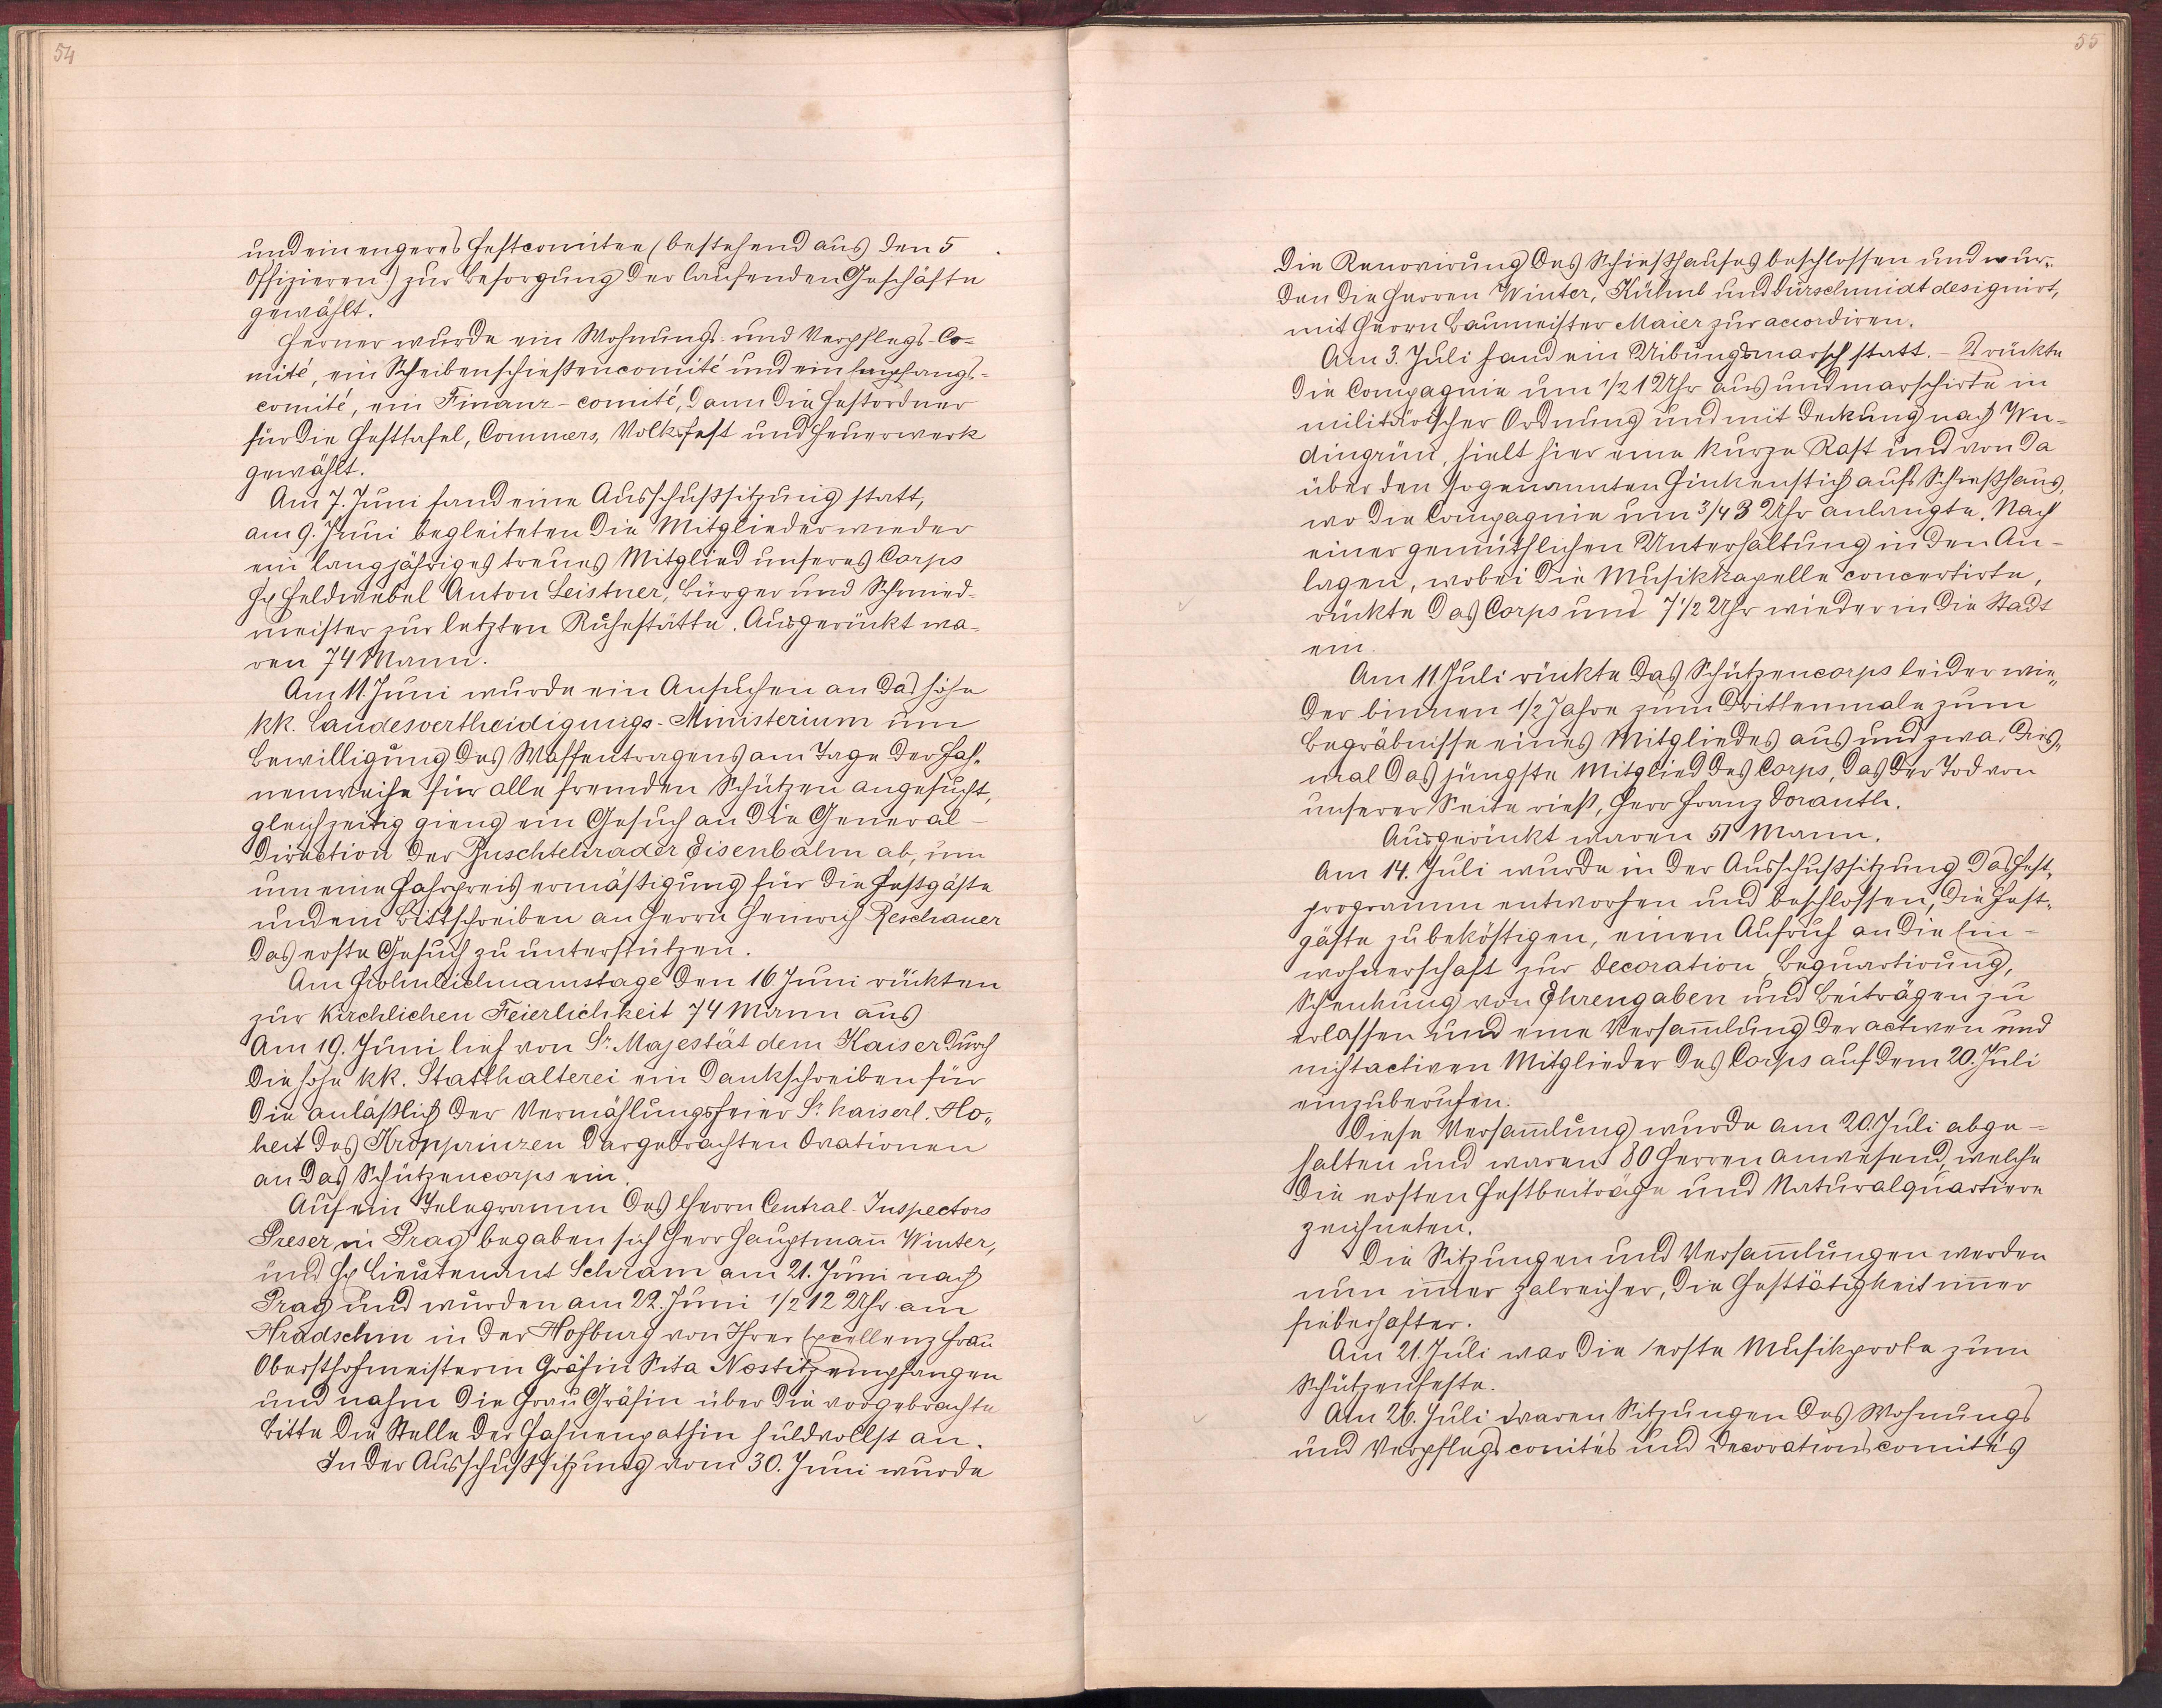 54
und ein engeres Festcomitee (bestehend aus den 5
Offizieren) zur Besorgung der laufenden Geschäfte
gewählt.
Ferner wurde ein Wohnungs- und Verpflegs-Co-
mité, ein Scheibenschießencomité und ein Empfangs-
comité, ein Finanz-comité, dann die Festordner
für die Festtafel, Commers, Volksfest und Feuerwerk
gewählt.
Am 7. Juni fand eine Ausschußsitzung statt,
am 9. Juni begleiteten die Mitglieder wieder
ein langjähriges treues Mitglied unseres Corps
H. Feldwebel Anton Leistner, Bürger und Schmied-
meister zur letzten Ruhestätte. Ausgerückt wa-
ren 74 Mann.
Am 11. Juni wurde ein Ansuchen an das hohe
kk. Landesvertheidigungs-Ministerium um
Bewilligung des Waffentragens am Tage der Fah-
nenweihe für alle fremden Schützen angesucht,
gleichzeitig gieng ein Gesuch an die General-
Direction der Buschtehrader Eisenbahn ab, um
um eine Fahrpreisermäßigung für die Festgäste
und ein Bittschreiben an Herrn Heinrich Reschauer
das erste Gesuch zu unterstützen.
Am Frohnleichnamstage den 16 Juni rückten
zur kirchlichen Feierlichkeit 74 Mann aus
Am 19. Juni lief von Sr. Majestät dem Kaiser durch
die hohe kk. Statthalterei ein Dankschreiben für
die anläßlich der Vermählungsfeier Sr. kaiserl. Ho-
heit des Kronprinzen dargebrachten Ovationen
an das Schützencorps ein.
Auf ein Telegramm des Herrn Central-Inspectors
Preser in Prag begaben sich Herr Hauptmann̄ Winter,
und H. Lieutenant Schram am 21. Juni nach
Prag und wurden am 22. Juni 1/2 12 Uhr am
Hradschin in der Hofburg von Ihrer Excellenz Frau
Obersthofmeisterin Gräfin Sita Nostitz empfangen
und nahm die Frau Gräfin über die vorgebrachte
Bitte die Stelle der Fahnenpathin huldvollst an.
In der Ausschußsitzung vom 30. Juni wurde
55
die Renovirung des Schießhauses beschlossen und wur-
den die Herren Winter, Kühnl und Dürschmidt designirt,
mit Herrn Baumeister Maier zur accordiren.
Am 3. Juli fand ein Uibungsmarsch statt. – Es rückte
die Compagnie um 1/2 1 Uhr aus und marschirte in
militärischer Ordnung und mit Deckung nach Wu-
dingrün, hielt hier eine kurze Rast und von da
über den sogenannten Finkenstich aufs Schießhaus,
wo die Compagnie um 3/4 3 Uhr anlangte. Nach
einer gemüthlichen Unterhaltung in den An-
lagen, wobei die Musikkapelle concertirte,
rückte das Corps und 7 1/2 Uhr wieder in die Stadt
ein.
Am 11 Juli rückte das Schützencorps leider wie-
der binnen 1/2 Jahre zum Drittenmale zum
Begräbnisse eines Mitgliedes aus und zwar dies-
mal das jüngste Mitglied des Corps, das der Tod von
unserer Seite rieß, Herr Franz Doranth.
Ausgerückt waren 51 Mann.
Am 14. Juli wurde in der Ausschußsitzung das Fest-
programm entworfen und beschlossen, die Fest-
gäste zu beköstigen, einen Aufruf an die Ein-
wohnerschaft zur Decoration, Bequartirung,
Schenkung von Ehrengaben und Beiträgen zu
erlassen und eine Versam̄lung der activen und
nichtactiven Mitglieder des Corps auf dem 20. Juli
einzuberufen.
Diese Versam̄lung wurde am 20. Juli abge-
halten und waren 80 Herren anwesend, welche
die ersten Festbeiträge und Naturalquartiere
zeichneten.
Die Sitzungen und Versam̄lungen werden
nun im̄er zalreicher, die Festtätigkeit im̄er
fieberhafter.
Am 21. Juli war die erste Musikprobe zum
Schützenfeste.
Am 26. Juli waren Sitzungen des Wohnungs
und Verpflegscomités und Decorationscomités